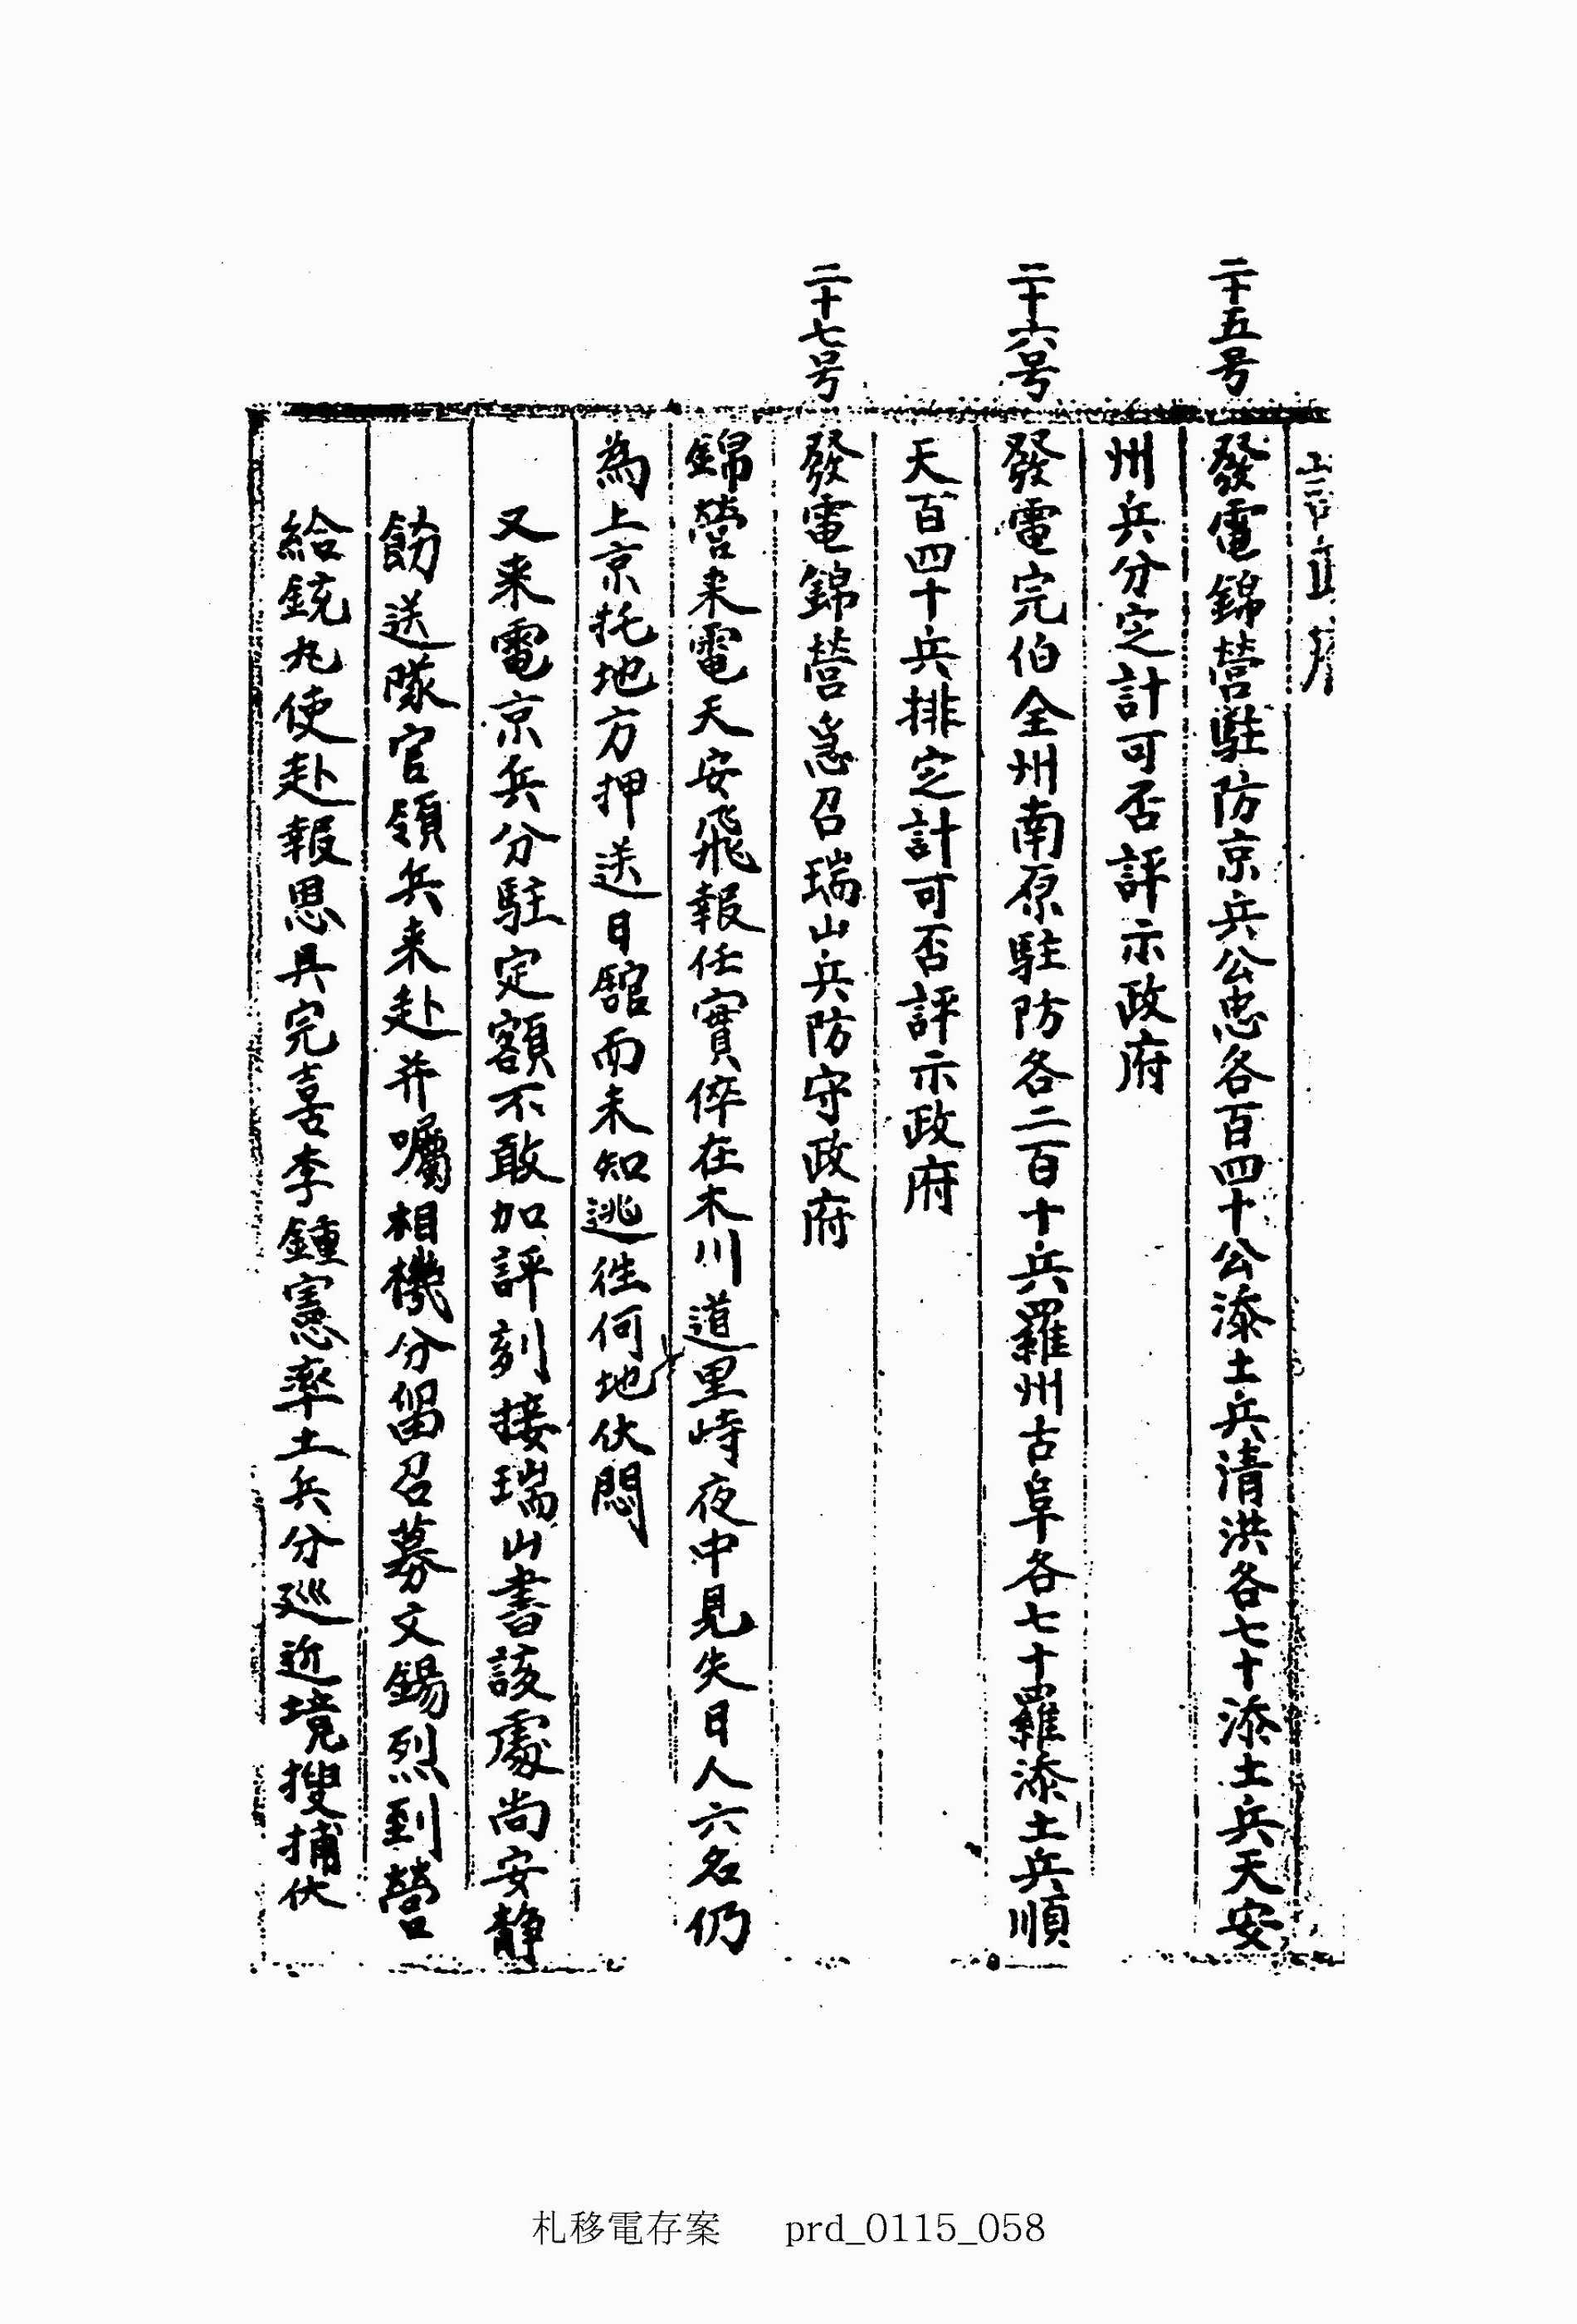 二十五号
發電錦營駐防京兵公忠各百四十公添土兵清洪各七十添土兵天安
州兵分定計可否評示政府
二十六号
發電完伯全州南原駐防各二百十兵羅州古阜各七十羅添土兵順
天百四十兵排定計可否評示政府
二十七号
發電錦營急召瑞山兵防守政府
錦營来電天安飛報任實倅在木川道里峙夜中見失日人六名仍
為上京托地方押送日舘而未知逃徃何地伏悶
又来電京兵分駐定額不敢加評刻接瑞山書該處尚安靜
飭送隊官領兵来赴并囑相機分留召募文錫烈到營
給銃丸使赴報恩具完喜李鍾憲率土兵分廵近境搜捕伏
札移電存案 prd_0115_058